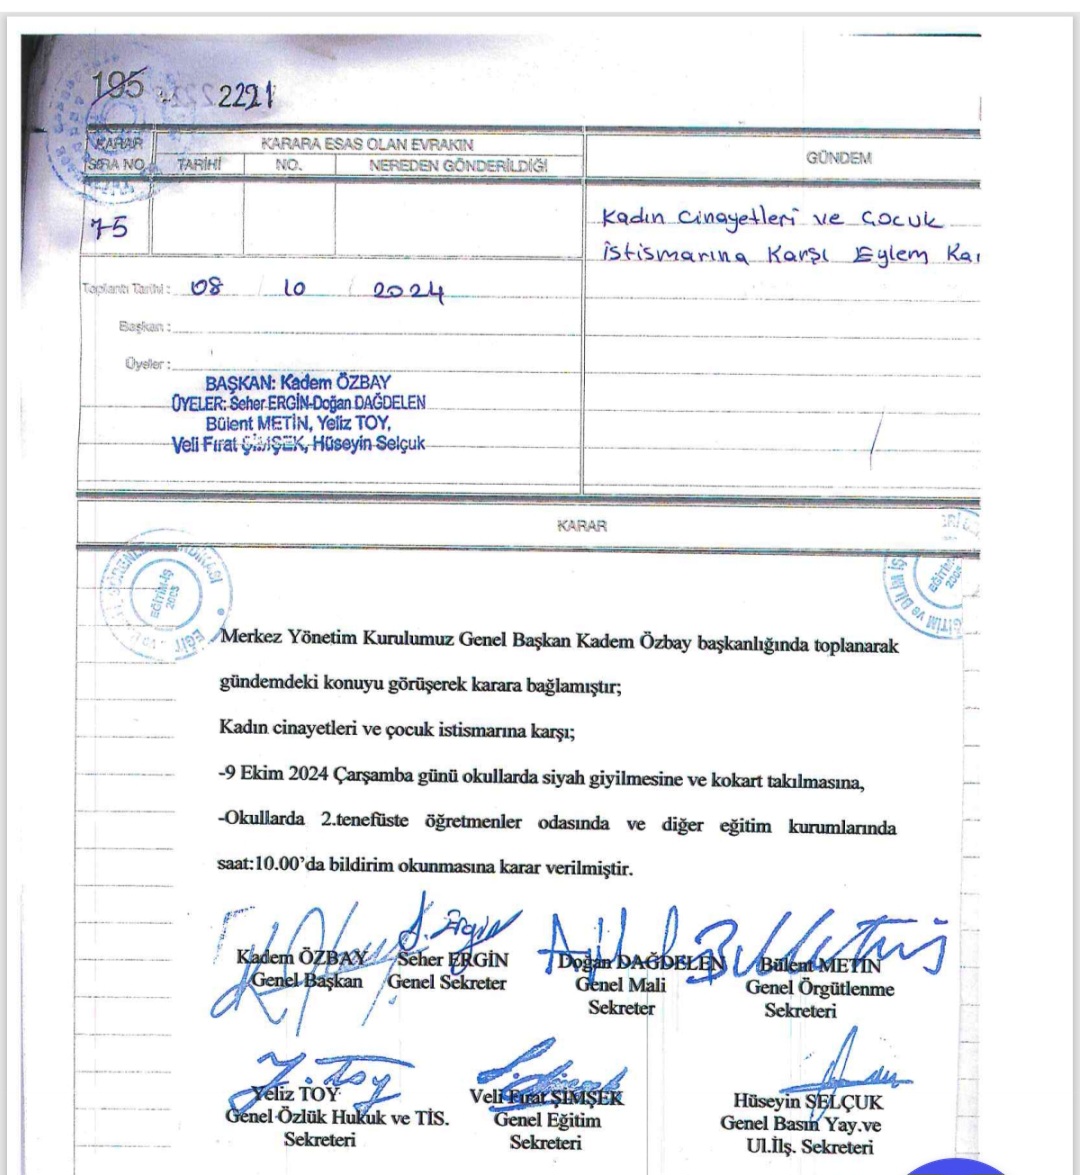 195 2221
KARAR SIRA NO
KARARA ESAS OLAN EVRAKIN
TARİHİ NO. NEREDEN GÖNDERİLDİĞİ
GÜNDEM
75
Kadın Cinayetleri ve Çocuk
İstismarına Karşı Eylem
Toplantı Tarihi : 08 / 10 / 2024
Başkan :
Üyeler :
BAŞKAN: Kadem ÖZBAY
ÜYELER: Seher ERGİN-Doğan DAĞDELEN
Bülent METİN, Yeliz TOY,
Veli Fırat ŞİMŞEK, Hüseyin Selçuk
KARAR
EĞİTİM-İŞ
2005
Merkez Yönetim Kurulumuz Genel Başkan Kadem Özbay başkanlığında toplanarak
gündemdeki konuyu görüşerek karara bağlamıştır;
Kadın cinayetleri ve çocuk istismarına karşı;
-9 Ekim 2024 Çarşamba günü okullarda siyah giyilmesine ve kokart takılmasına,
-Okullarda 2.tenefüste öğretmenler odasında ve diğer eğitim kurumlarında
saat:10.00’da bildirim okunmasına karar verilmiştir.
Kadem ÖZBAY Seher ERGİN Doğan DAĞDELEN Bülent METİN
Genel Başkan Genel Sekreter Genel Mali Genel Örgütlenme
Sekreter Sekreteri
Yeliz TOY Veli Fırat ŞİMŞEK Hüseyin SELÇUK
Genel Özlük Hukuk ve TİS. Genel Eğitim Genel Basın Yay.ve
Sekreteri Sekreteri Ul.İlş. Sekreteri